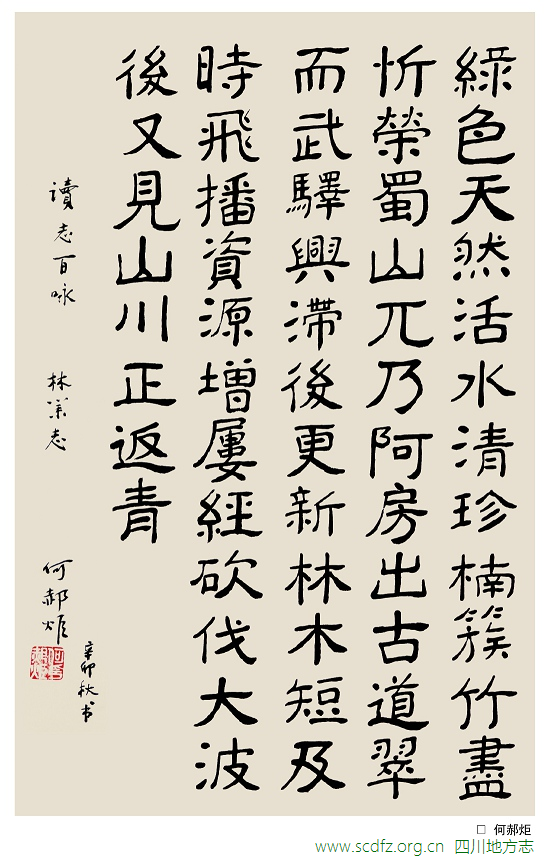 綠色天然活水清珍楠簇竹盡
忻榮蜀山兀乃阿房出古道翠
而武驛興滯後更新林木短及
時飛播資源增屢經砍伐大波
後又見山川正返青
讀志百咏 林業志
何郝炬
辛卯秋书
□ 何郝炬
www.scdfz.org.cn 四川地方志